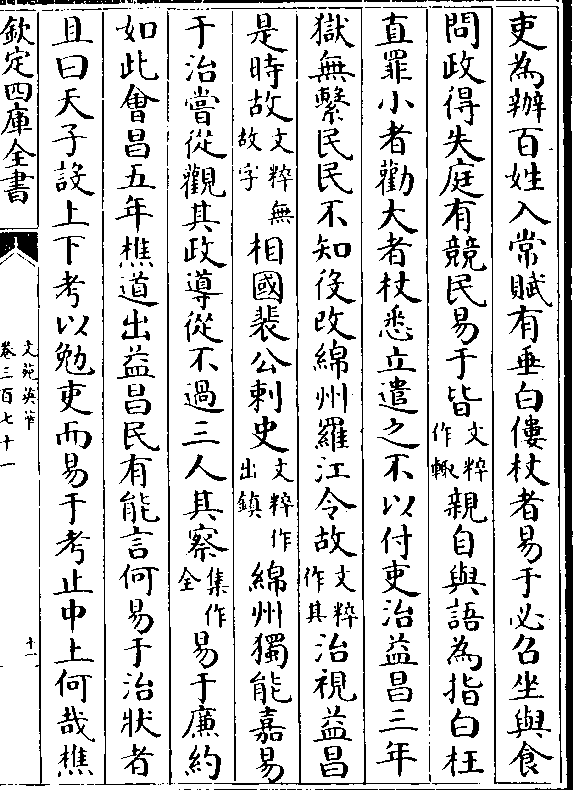 吏為辦百姓入常賦有垂白僂杖者易于必召坐與食
問政得失庭有競民易于皆文粹作輙親自與語為指白枉
直罪小者勸大者杖悉立遣之不以付吏治益昌三年
獄無繫民民不知役改綿州羅江令故文粹作其治視益昌
是時故文粹無故字相國裴公刺史文粹作出鎮綿州獨能嘉易
于治嘗從觀其政導從不過三人其察集作全易于廉約
如此會昌五年樵道出益昌民有能言何易于治狀者
且曰天子設上下考以勉吏而易于考止中上何哉樵
欽定四庫全書
文苑英華
卷三百七十一
十一